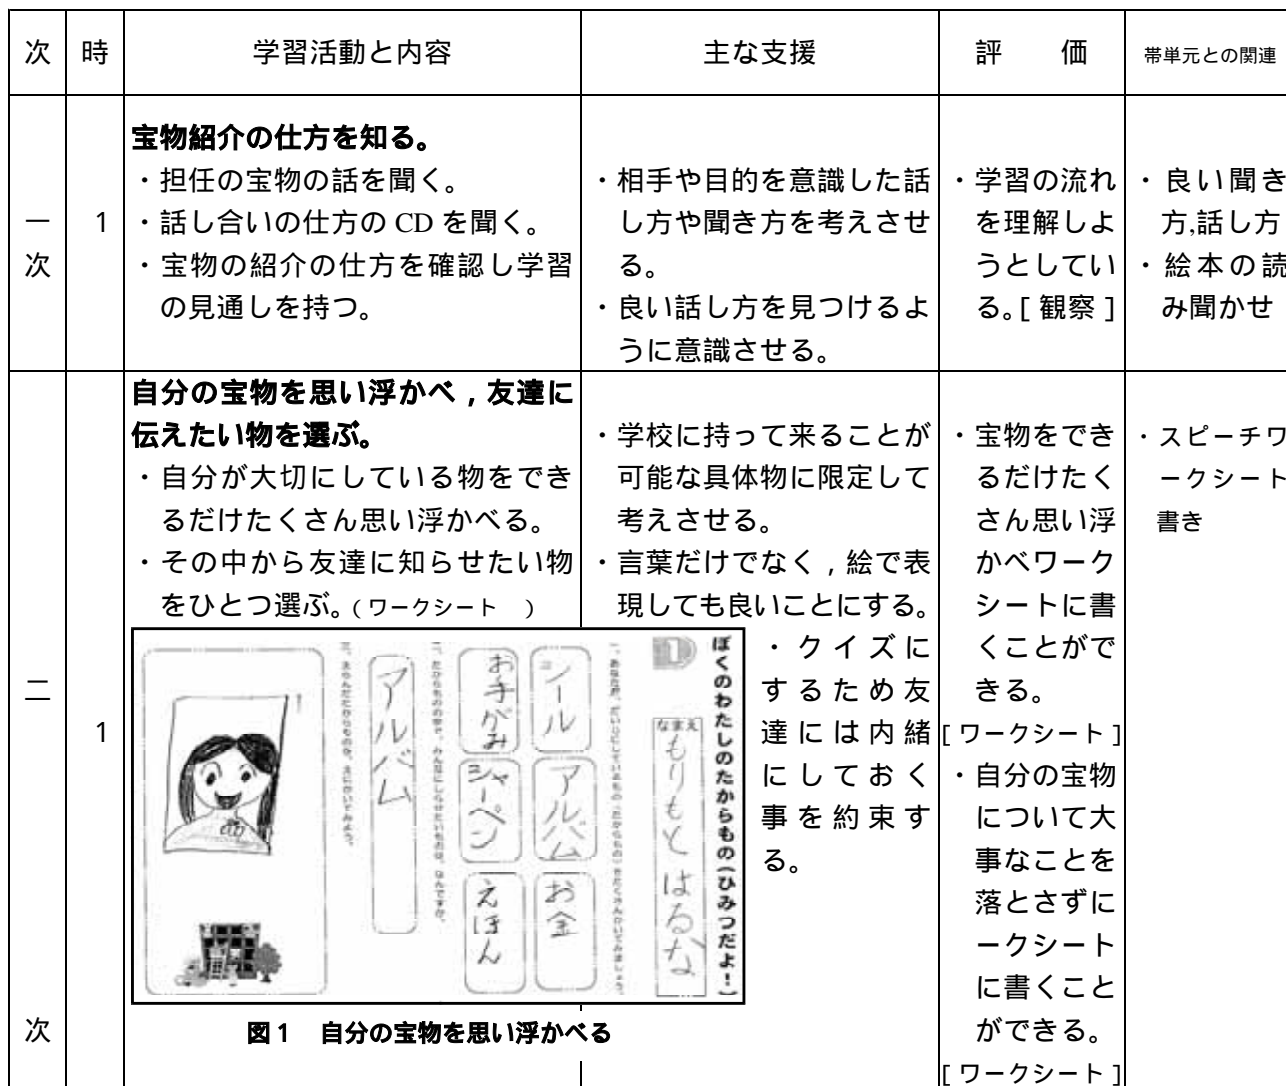 次
時
学習活動と内容
主な支援
評　価
帯単元との関連
一
次
1
宝物紹介の仕方を知る。
・担任の宝物の話を聞く。
・話し合いの仕方の CD を聞く。
・宝物の紹介の仕方を確認し学習
の見通しを持つ。
・相手や目的を意識した話
し方や聞き方を考えさせ
る。
・良い話し方を見つけるよ
うに意識させる。
・学習の流れ
を理解しよ
うとしてい
る。[ 観察 ]
・良い聞き
方,話し方
・絵本の読
み聞かせ
二
次
1
自分の宝物を思い浮かべ，友達に
伝えたい物を選ぶ。
・自分が大切にしている物をでき
るだけたくさん思い浮かべる。
・その中から友達に知らせたい物
をひとつ選ぶ。(ワークシート　)
ぼくのわたしのたからもの(ひみつだよ！)
なまえ
もりもと はるな
一、あなたが、だいじにしているもの（たからもの）をたくさんかいてみましょう。
シール
アルバム
お金
お手がみ
シャーペン
えほん
二、たからものの中で、みんなにしらせたいものは、なんですか。
アルバム
三、えらんだたからものを、えにかいてみよう。
図１　自分の宝物を思い浮かべる
・学校に持って来ることが
可能な具体物に限定して
考えさせる。
・言葉だけでなく，絵で表
現しても良いことにする。
・クイズに
するため友
達には内緒
にしておく
事を約束す
る。
・宝物をでき
るだけたく
さん思い浮
かべワーク
シートに書
くことがで
きる。
[ワークシート]
・自分の宝物
について大
事なことを
落とさずに
ークシート
に書くこと
ができる。
[ワークシート]
・スピーチワ
ークシート
書き